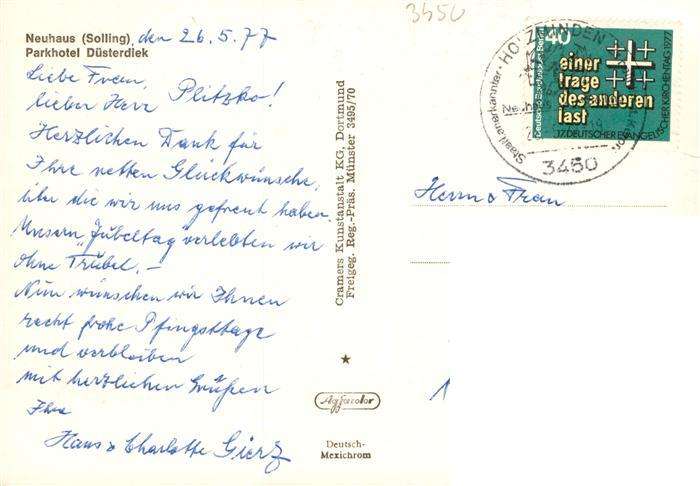 Neuhaus (Solling) den 26.5.77
Parkhotel Düsterdiek
Liebe Frau,
lieber Herr Plitzko!
Herzlichen Dank für
Ihre netten Glückwünsche,
über die wir uns gefreut haben.
Unsern "Jubeltag" verlebten wir
ohne Trubel. –
Nun wünschen wir Ihnen
recht frohe Pfingsttage
und verbleiben
mit herzlichen Grüßen
Ihre
Hans & Charlotte Gierz
Cramers Kunstanstalt KG, Dortmund
Freigeg. Reg.-Präs. Münster 3495/70
Agfacolor
Deutsch-
Mexichrom
3450
HOLZMINDEN
Staatl. anerkannter
Neuhaus
3450
40
Deutsche Bundespost Berlin
einer
trage
des anderen
last
17. DEUTSCHER EVANGELISCHER KIRCHENTAG 1977
Herrn & Frau